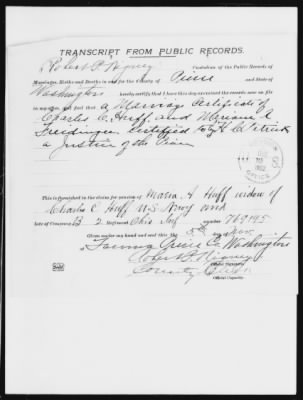 TRANSCRIPT FROM PUBLIC RECORDS.
Robert P. Custodian of the Public Records of
Marriages, Births and Deaths in and for the County of Pierce and State of
Washington hereby certify that I have this day examined the records now on file
in my office, and find that a Marriage Certificate of
Charles C. Huff and
Certified to by
a Justice of the Peace
This is furnished in the claim for pension of Maria A Huff widow of
Charles C Huff U.S. Army and
late of Company B 2 Regiment Ohio Inf number 769145
Given under my hand and this the 5th day of Nov
Tacoma Pierce Co Washington
Robert P.
Official Signature.
County Clerk
Official Capacity.
Seal